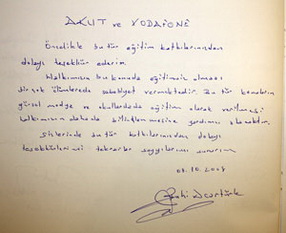 AKUT ve VODAFONE
Öncelikle bu tür eğitim katkılarınızdan
dolayı teşekkür ederim.
Halkımızın bu konuda eğitimsiz olması
birçok ölümlerede sebebiyet vermektedir. Bu tür konuların
görsel medya ve okullardada eğitim olarak verilmesi
halkımızın dahada bilinçlenmesine yardımcı olacaktır.
Sizlerinde bu tür katkılarınızdan dolayı
teşekkürlerimi tekrarlar saygılarımı sunarım